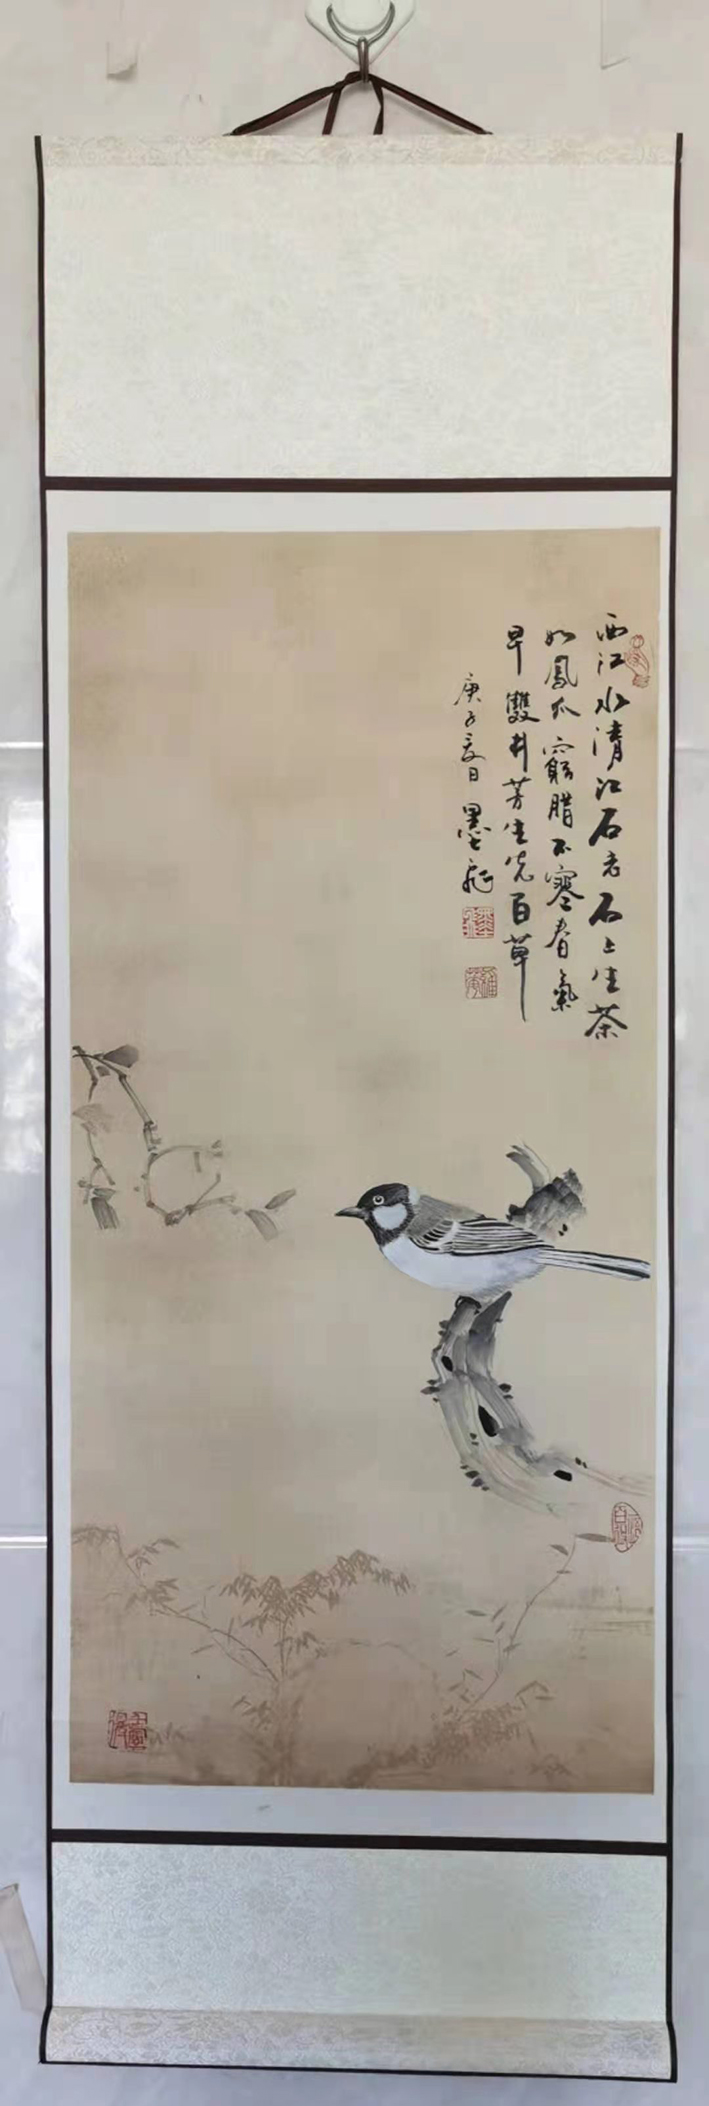 西江水清江石老石上生茶
如鳳爪窮臘不寒春氣
早雙井芳生先百草
庚子夏日墨